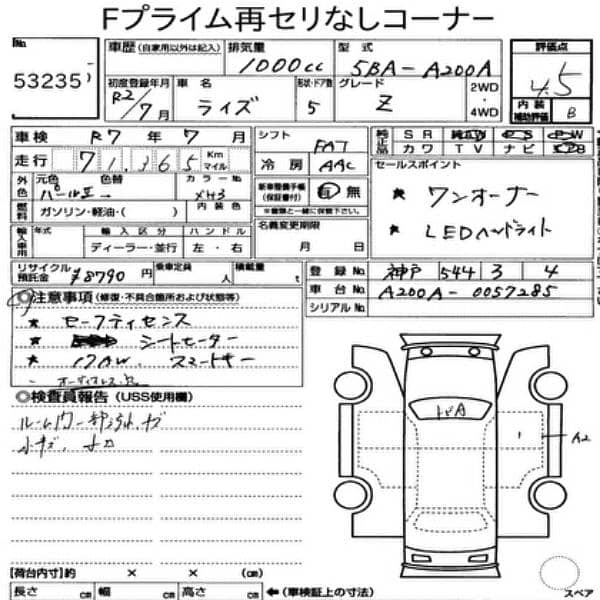 Fプライム再セリなしコーナー
No.
53235
車歴(自家用以外は記入) 排気量 型式 評価点
1000cc 5BA-A200A 4.5
初度登録年月 車名 形状・ドア数 グレード 2WD・4WD 内装補助評価
R2/7月 ライズ 5 Z B
車検 R7年7月 シフト FAT
走行 71,365 Km マイル 冷房 AAC
純正品 SR カワ TV ナビ
外色 元色 色替 カラーNo.
パールII XH3
新車整備手帳(保証書付) 有 無
※書類と一緒に保管下さい。
燃料 ガソリン・軽油・( ) 内装色
セールスポイント
★ ワンオーナー
★ LEDヘッドライト
輸入車用 年式 輸入区分 ハンドル
ディーラー・並行 左・右
名義変更期限
月 日
リサイクル預託金 ¥8790円 乗車定員 人 積載量 t
登録No. 神戸 544 3 4
車台No. A200A-0057285
シリアルNo.
◎注意事項(修復・不具合箇所および状態等)
★ セーフティセンス
★ シートヒーター
★ 17AW. スマートキー
オーディオレス
◎検査員報告(USS使用欄)
ルーム内一部汚れ.キズ
小キズ.
トバA
A2
【荷台内寸】約 × × (cm)
長さ cm 幅 cm 高さ cm ←(車検証上の寸法)
スペア